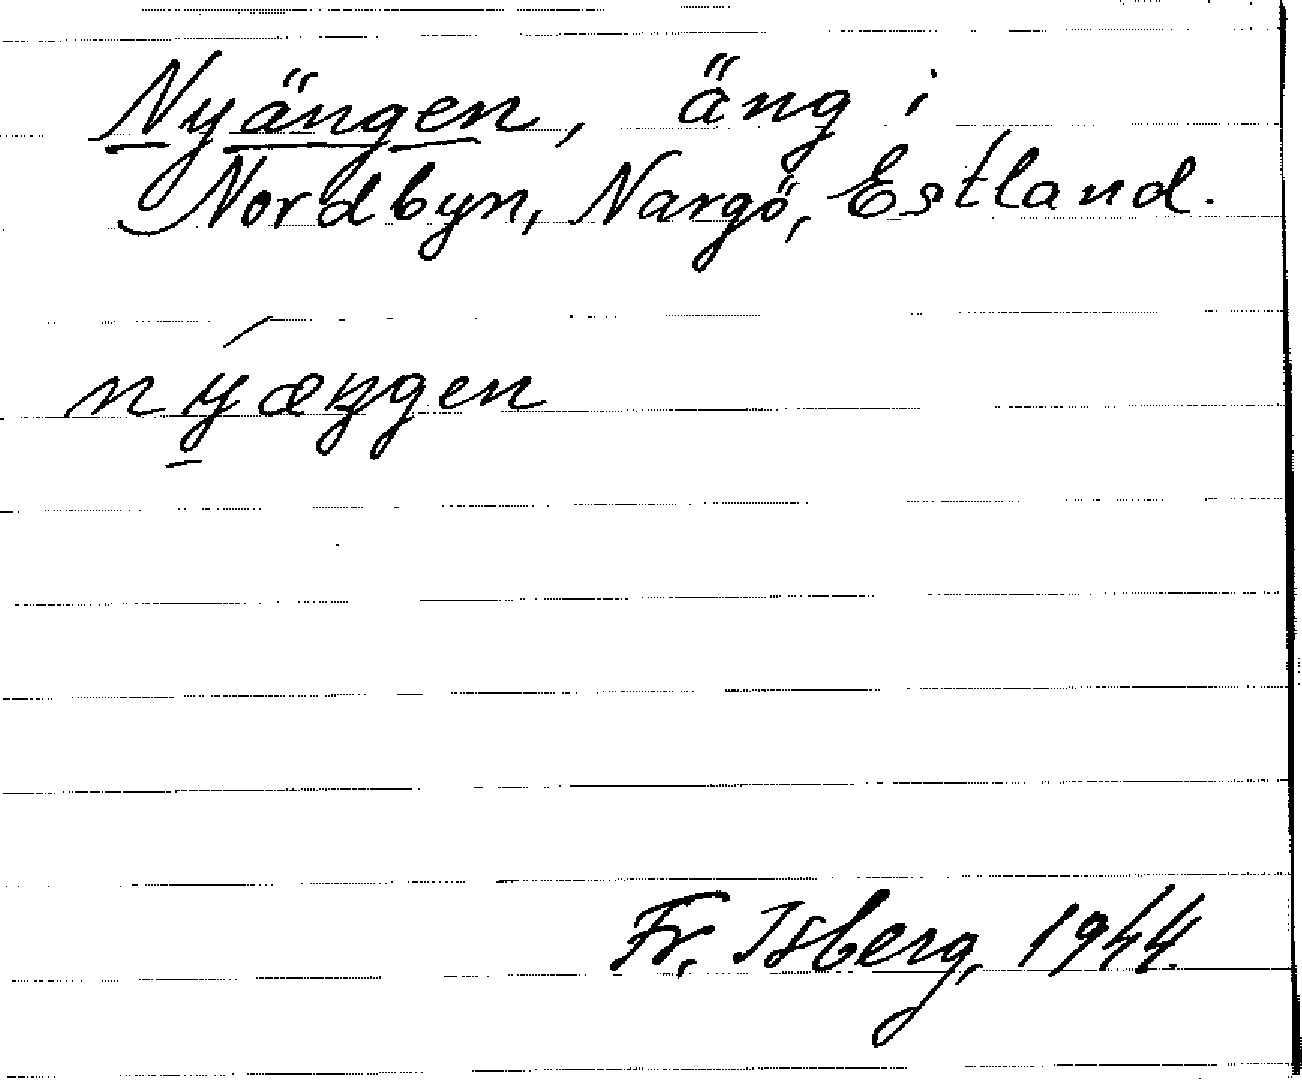 Nyängen, äng i
Nordbyn, Nargö, Estland.
nýæŋgen
Fr. Isberg, 1944.